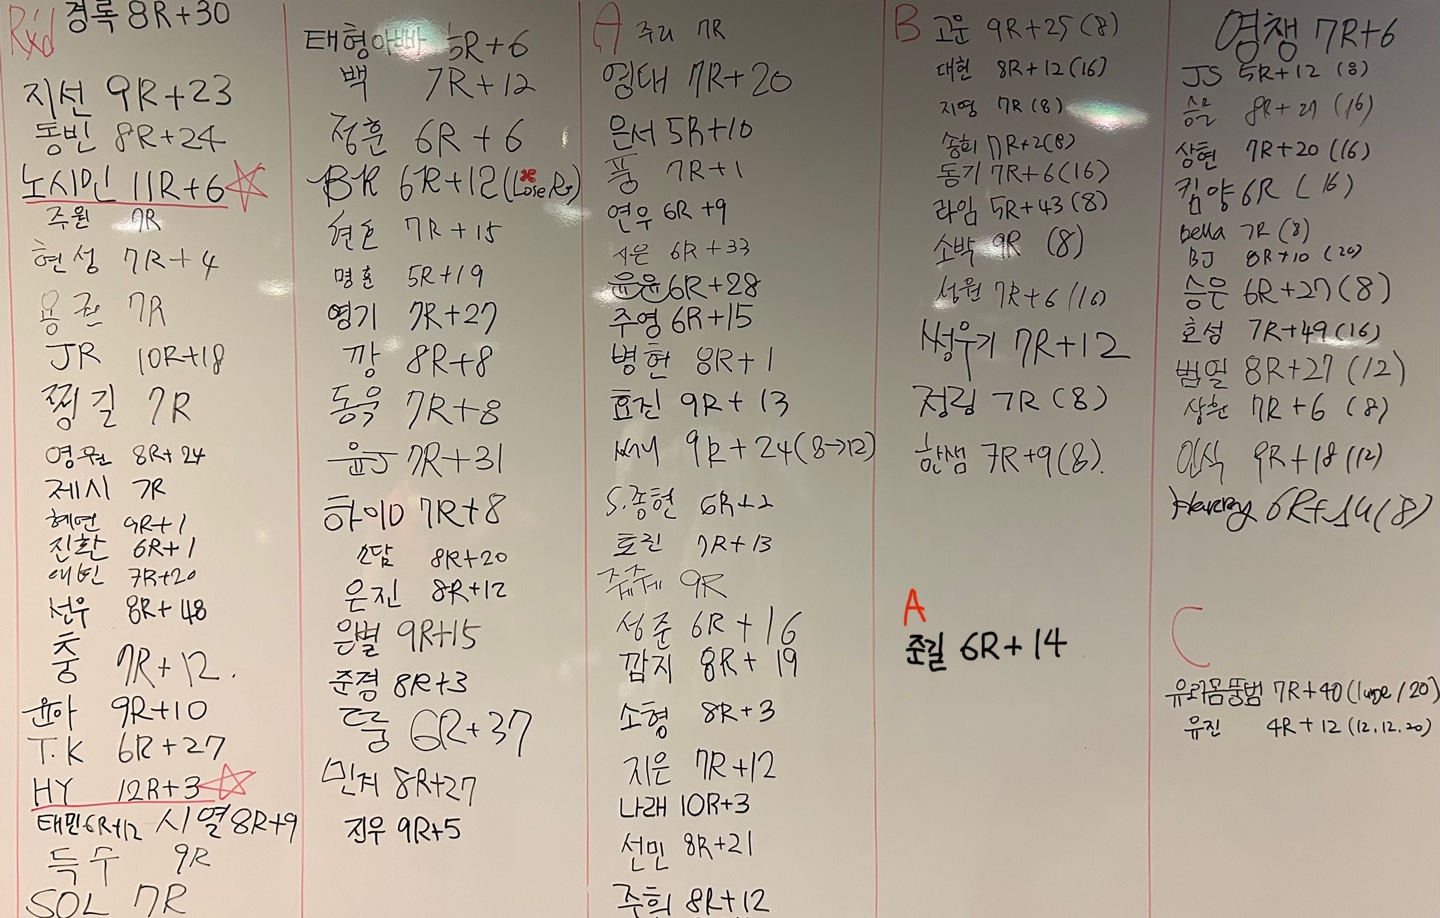 Rxd 경록 8R+30
지선 9R+23
동빈 8R+24
노시민 11R+6
주원 7R
현성 7R+4
용권 7R
JR 10R+18
찡길 7R
영원 8R+24
제시 7R
혜연 9R+1
진환 6R+1
애빈 7R+20
선우 8R+48
충 7R+12.
윤아 9R+10
T.K 6R+27
HY 12R+3
태민 6R+12 시열 8R+9
득수 9R
SOL 7R
태형아빠 5R+6
백 7R+12
정훈 6R+6
BR 6R+12 (Lose Rx)
7R+15
명훈 5R+19
영기 7R+27
깡 8R+8
동욱 7R+8
윤J 7R+31
하이D 7R+8
소담 8R+20
은진 8R+12
은별 9R+15
준경 8R+3
6R+37
민저 8R+27
진우 9R+5
A 주리 7R
영대 7R+20
은서 5R+10
풍 7R+1
연우 6R+9
서은 6R+33
윤윤 6R+28
주영 6R+15
병현 8R+1
효진 9R+13
써니 9R+24 (8→12)
S.종현 6R+2
토진 7R+13
쥬쥬 9R
성준 6R+16
깜지 8R+19
소형 8R+3
지은 7R+12
나래 10R+3
선민 8R+21
주희 8R+12
B 고운 9R+25 (8)
대현 8R+12 (16)
지영 7R (8)
송희 7R+2 (8)
동기 7R+6 (16)
라임 5R+43 (8)
소박 9R (8)
성원 7R+6 (16)
썽우기 7R+12
정링 7R (8)
한샘 7R+9 (8).
A
준길 6R+14
영챙 7R+6
JS 5R+12 (8)
승윤 8R+21 (16)
상현 7R+20 (16)
킴양 6R (16)
Bella 7R (8)
BJ 8R+10 (20)
승은 6R+27 (8)
호성 7R+49 (16)
범일 8R+27 (12)
상훈 7R+6 (8)
인식 9R+18 (12)
Harry 6R+14 (8)
C
유리몸뚱범 7R+40 (lunge/20)
유진 4R+12 (12.12.20)